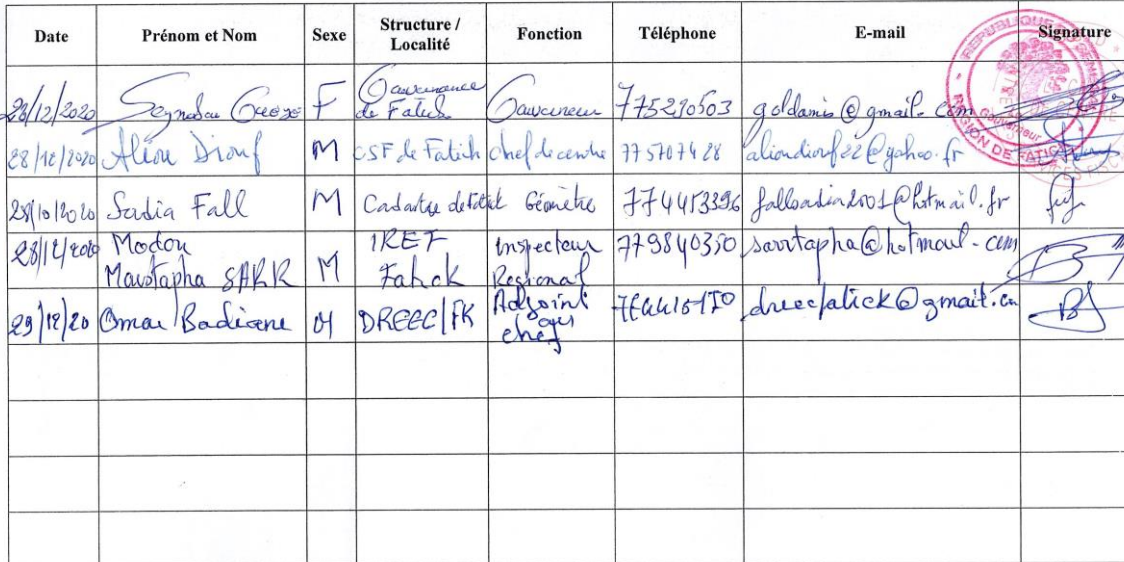 Date Prénom et Nom Sexe Structure / Localité Fonction Téléphone E-mail Signature
28/12/2020 F Gouvernance de Fatick Gouverneur 775290503 goldamis@gmail.com
28/12/2020 Aliou Diouf M CSF de Fatick chef de centre 775707428 alioudiouf22@yahoo.fr
28/10/2020 Sadia Fall M Cadastre de Fatick Géomètre 774453396 fallsadia2001@hotmail.fr
28/12/2020 Modou Moustapha SARR M IREF Fatick Inspecteur Regional 779840350 sarrtapha@hotmail.com
29/12/20 Omar Badiane M DREEC/FK Adjoint au chef dreecfatick@gmail.com
REPUBLIQUE DU SENEGAL
Gouverneur
REGION DE FATICK